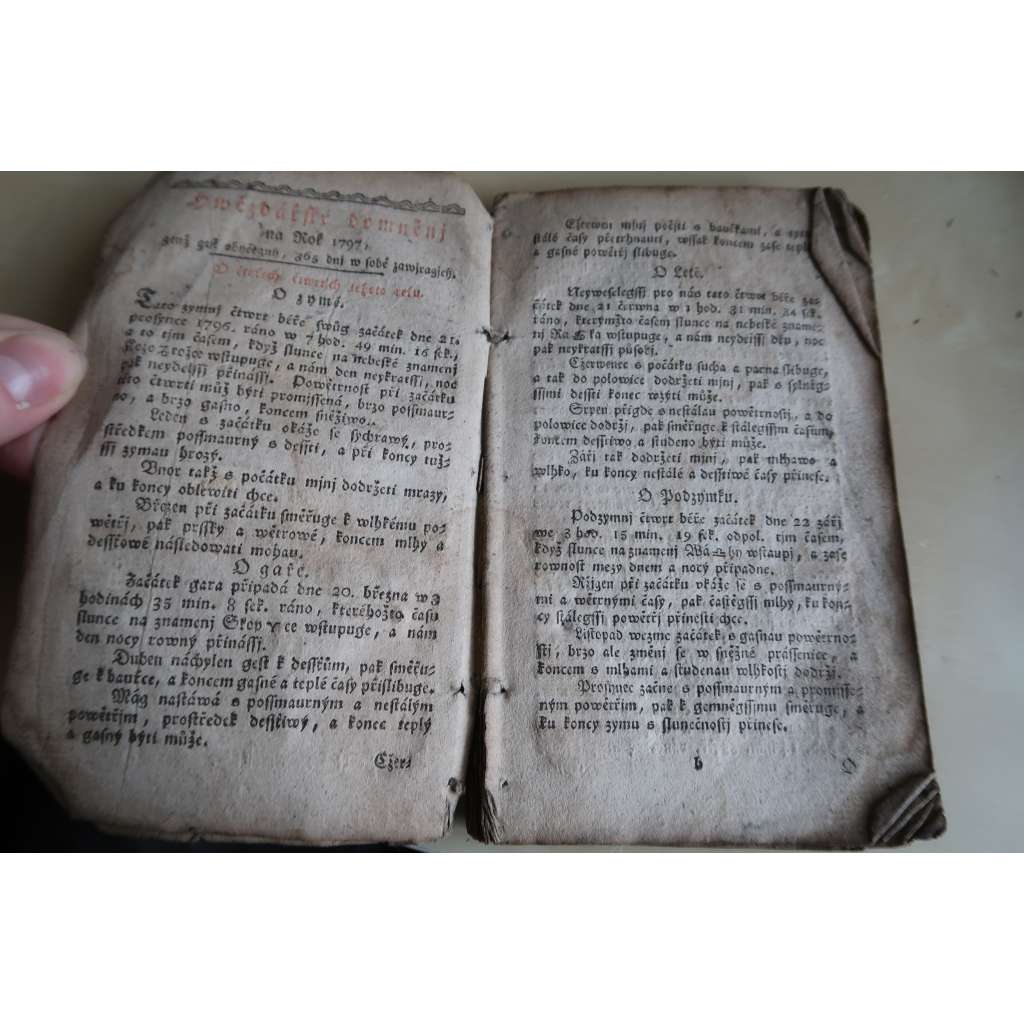 Hwězdářské domněnj
na Rok 1797,
genž gest obyčegný, 365 dnj w sobě zawjragjcý.
O čtyřech čtwrtjch tohoto roku.
O zymě.
Tato zymnj čtwrt béře swůg začátek dne 21.
prosynce 1796. ráno w 7 hod. 49 min. 16 sek.,
a to tjm časem, když slunce na nebeské znamenj
Kozo♑rožce wstupuge, a nám den neykratssj, noc
pak neydelssj přinássj. Powětrnost při začátku
této čtwrti můž býti promjssená, brzo possmaur-
no, a brzo gasno, koncem sněžiwo.
Leden s začátku okáže se sychrawý, pro-
středkem possmaurný s dessti, a při koncy tuž-
ssj zymau hrozý.
Vnor takž s počátku mjnj dodržeti mrazy,
a ku koncy oblewiti chce.
Březen při začátku směřuge k wlhkému po-
wětřj, pak prssky a wětrowé, koncem mlhy a
desstowé následowati mohau.
O gaře.
Začátek gara připadá dne 20. března w 3
hodinách 35 min. 8 sek. ráno, kteréhožto času
slunce na znamenj Skop♈ce wstupuge, a nám
den nocy rowný přinássj.
Duben náchylen gest k desstům, pak směřu-
ge k bauřce, a koncem gasné a teplé časy přislibuge.
Mág nastáwá s possmaurným a nestálým
powětřjm, prostředek desstiwý, a konec teplý
a gasný býti může.
Čžer-
Čžerwen mjnj počjti s bauřkami, a
stálé časy přetrhnauti, wssak koncem zase teplé
a gasné powětřj slibuge.
O Letě.
Neyweselegssj pro nás tato čtwrt béře za-
čátek dne 21 června w 1 hod. 31 min. 34 sek.
ráno, kterýmžto časem slunce na nebeské zname-
nj Ra♋ka wstupuge, a nám neydelssj den, noc
pak neykratssj působj.
Čžerwenec s počátku sucha a parna slibuge,
a tak do polowice dodržeti mjnj, pak s sylněg-
ssjmi dessti konec wzýti může.
Srpen přigde s nestálau powětrnostj, a do
polowice dodržj, pak směřuge k stálegssjm časům,
koncem desstiwo a studeno býti může.
Zářj tak dodržeti mjnj, pak mlhawo a
wlhko, ku koncy nestálé a desstiwé časy přinese.
O Podzymku.
Podzymnj čtwrt béře začátek dne 22 zářj
we 3 hod. 15 min. 19 sek. odpol. tjm časem,
když slunce na znamenj Wá♎hy wstaupj, a zase
rownost mezy dnem a nocý připadne.
Řjgen při začátku vkáže se s possmaurný-
mi a wětrnými časy, pak častěgssj mlhy, ku kon-
cy stálegssj powětřj přinesti chce.
Listopad wezme začátek s gasnau powětrno-
stj, brzo ale změnj se w sněžné prássenice, a
koncem s mlhami a studenau wlhkostj dodržj.
Prosynec začne s possmaurným a promjsse-
ným powětřjm, pak k gemněgssjmu směřuge, a
ku koncy zymu s slunečnostj přinese.
b